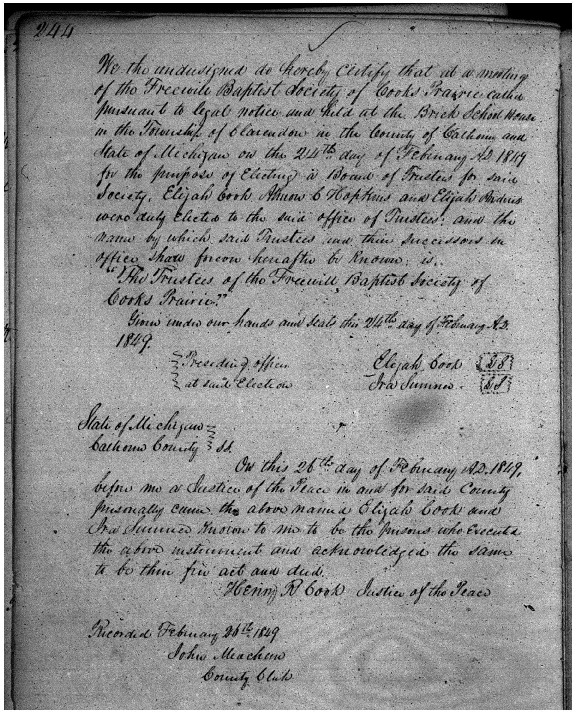 244
We the undersigned do hereby Certify that at a meeting
of the Freewill Baptist Society of Cooks Prairie Called
pursuant to legal notice and held at the Brick School House
in the Township of Clarendon in the County of Calhoun and
State of Michigan on the 24th day of February A.D. 1849
for the purpose of Electing a Board of Trustees for said
Society. Elijah Cook C Hopkins and Elijah
were duly Elected to the said office of Trustees: and the
name by which said Trustees and their Successors in
office shall forever hereafter be known: is.
"The Trustees of the Freewill Baptist Society of
Cooks Prairie."
Given under our hands and seals this 24th day of February A.D.
1849.
Presiding officers Elijah Cook LS
at said Election Ira Sumner. LS
State of Michigan
Calhoun County ss.
On this 26th day of February A.D. 1849,
before me a Justice of the Peace in and for said County
personally came the above named Elijah Cook and
Ira Sumner known to me to be the persons who Executed
the above instrument and acknowledged the same
to be their free act and deed.
Henry R Cook Justice of the Peace
Recorded February 26th 1849
John Meachem
County Clerk